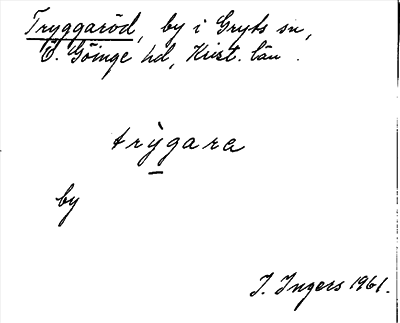 Tryggaröd, by i Gryts sn,
Ö. Göinge hd, Krist. län.
trỳgara
by
I. Ingers 1961.